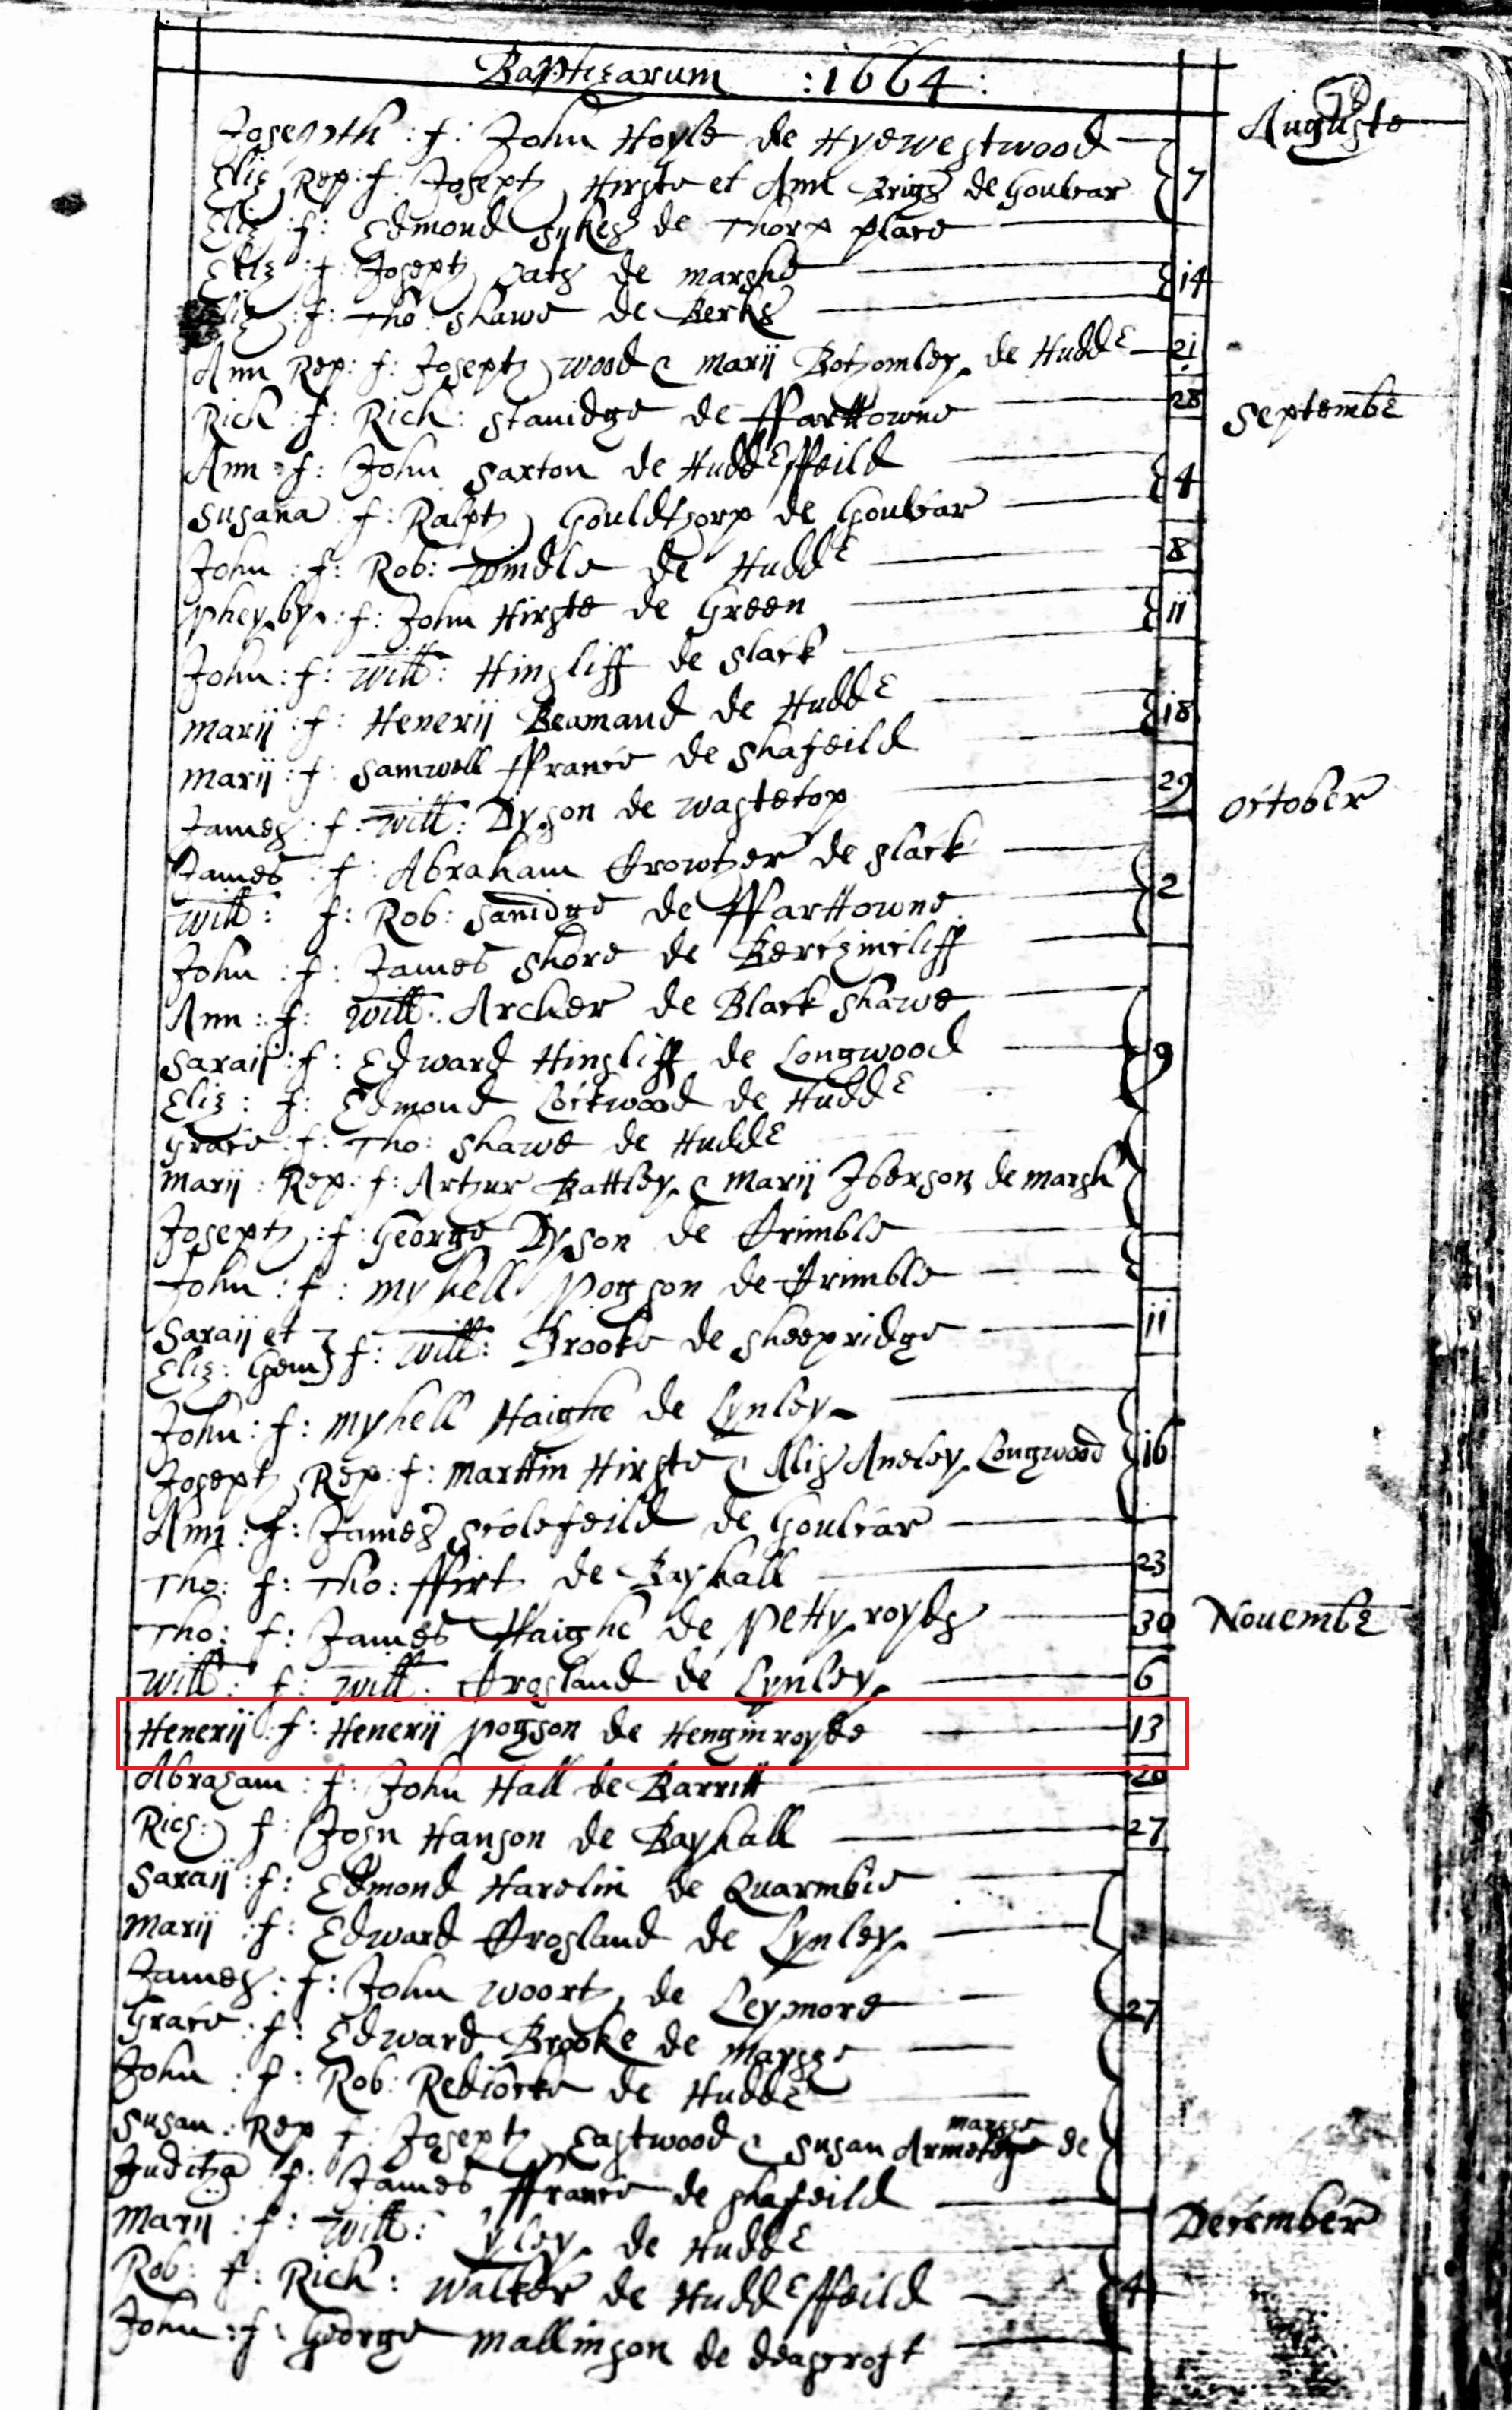 Baptizarum :1664:
Auguste
Josepth : f : John Hoyle de Hyewestwood
Eliz Rep: f: Joseph Hirste et Ann Brigs de Goulcar 7
Eliz : f: Edmond Sykes de Thorp place
Eliz : f: Joseph Oats de marshe 14
f: Tho: Shawe de Berks
Ann Rep: f: Joseph wood & Marij Bothomley de Hudde 21
Rich: f: Rich: Stanidge de ffarttowne 28
Septembe
Ann : f: John Saxton de Huddeffeild 4
Susana : f: Ralph Gouldthorp de Goulcar
John : f: Rob: Windle de Hudde 8
Pheyby : f: John Hirste de Green 11
John : f: Will: Hinsliff de Slack
Marij : f: Henerij Beamand de Hudde 18
Marij : f: Samwell ffrance de Shafeild
James : f: Will: Dyson de Wastetop 29
October
James : f: Abraham Crowther de Slack 2
Will: f: Rob: Sanidge de ffarttowne
John : f: James Shore de
Ann : f: Will: Archer de Black Shawe
Saraij : f: Edward Hinsliff de Longwood 9
Eliz : f: Edmond Lockwood de Hudde
Grace : f: Tho: Shawe de Hudde
Marij : Rep: f: Arthur Battley & Marij Iberson de marsh
Joseph : f: George Dyson de Crimble
John : f: myhell Pogson de Crimble
Saraij et
Eliz: Gem} f: Will: Brooke de Sheepridge 11
John : f: myhell Haighe de Lynley
Joseph Rep: f: Marttin Hirste & Alis Aneley Longwood 16
Ann : f: James Scolefeild de Goulcar
Tho: f: Tho: ffirth de Bayhall 23
Tho: f: James Haighe de Pettyroyds 30
Novembe
Will: f: Will: Crosland de Lynley 6
Henerij : f: Henerij Pogson de Henginroyde 13
Abraham : f: John Hall de Barritt 20
Rich: f: John Hanson de Bayhall 27
Saraij : f: Edmond Harelin de Quarmbie
Marij : f: Edward Crosland de Lynley
James : f: John Woorth de Leymore 27
Grace : f: Edward Brooke de Marshe
John : f: Rob: Rediocke de Hudde
Susan : Rep f: Joseph Eastwood & Susan Armetege de marshe
Juditha f: James ffrance de Shafeild
December
Marij : f: Will: Yley de Hudde
Rob: f: Rich: Walker de Huddeffeild 4
John : f: George Mallinson de deascroft